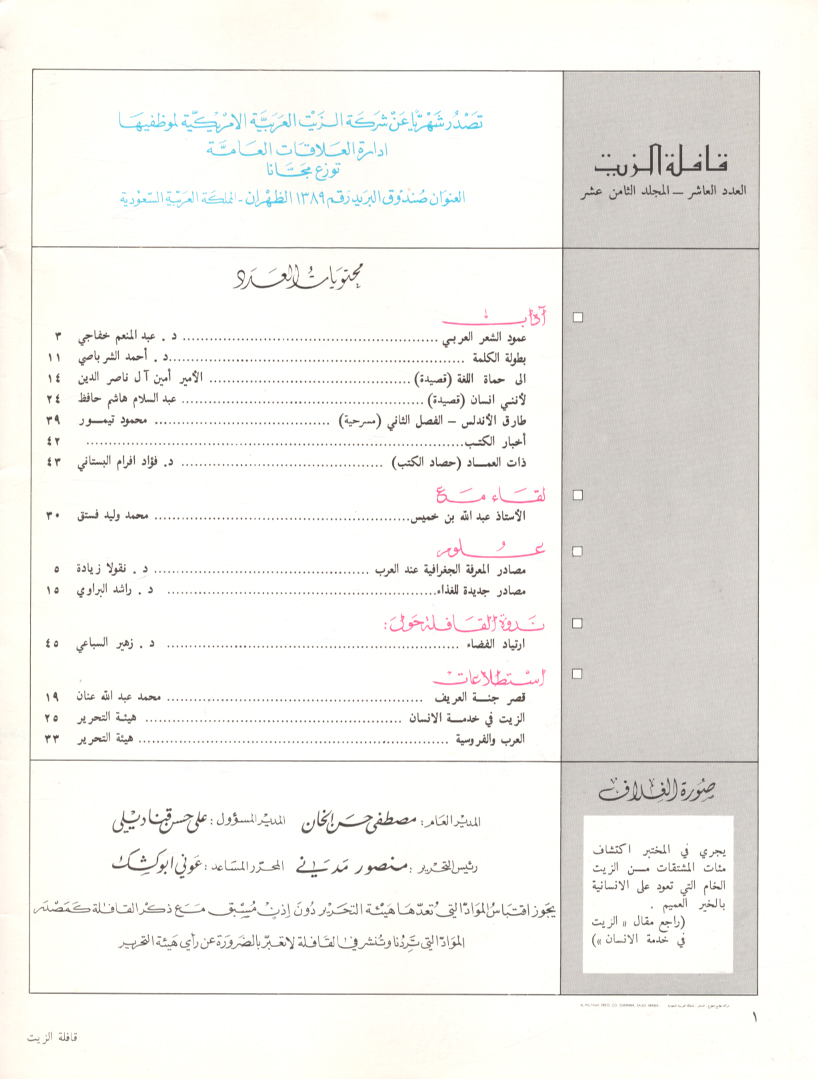 قافلة الزيت
العدد العاشر – المجلد الثامن عشر
تصدر شهريا عن شركة الزيت العربية الامريكية لموظفيها
ادارة العلاقات العامة
توزع مجانا
العنوان صندوق البريد رقم ١٣٨٩ الظهران - المملكة العربية السعودية
محتويات العدد
آداب
عمود الشعر العربي ........ د . عبد المنعم خفاجي ٣
بطولة الكلمة ........ د . أحمد الشرباصي ١١
الى حماة اللغة (قصيدة) ........ الأمير أمين آل ناصر الدين ١٤
لأنني انسان (قصيدة) ........ عبد السلام هاشم حافظ ٢٤
طارق الأندلس – الفصل الثاني (مسرحية) ........ محمود تيمور ٣٩
أخبار الكتب ........ ٤٢
ذات العماد (حصاد الكتب) ........ د. فؤاد افرام البستاني ٤٣
لقاء مع
الأستاذ عبد الله بن خميس ........ محمد وليد فستق ٣٠
علوم
مصادر المعرفة الجغرافية عند العرب ........ د . نقولا زيادة ٥
مصادر جديدة للغذاء ........ د . راشد البراوي ١٥
ندوة القافلة حول:
ارتياد الفضاء ........ د . زهير السباعي ٤٥
استطلاعات
قصر جنة العريف ........ محمد عبد الله عنان ١٩
الزيت في خدمة الانسان ........ هيئة التحرير ٢٥
العرب والفروسية ........ هيئة التحرير ٣٣
صورة الغلاف
يجري في المختبر اكتشاف
مئات المشتقات من الزيت
الخام التي تعود على الانسانية
بالخير العميم .
(راجع مقال « الزيت
في خدمة الانسان »)
المدير العام: مصطفى حسن الخان المدير المسؤول: علي حسن قناديلي
رئيس التحرير: منصور مدني المحرر المساعد: عوني ابوكشك
يجوز اقتباس المواد التي تعدها هيئة التحرير دون إذن مسبق مع ذكر القافلة كمصدر
المواد التي تردنا وتنشر في القافلة لا تعبر بالضرورة عن رأي هيئة التحرير
١
قافلة الزيت